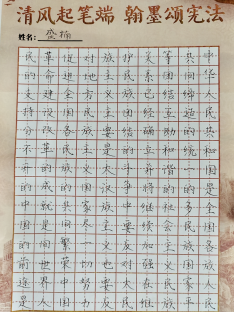 清风起笔端 翰墨颂宪法
姓名:
中华人民共和国是全国各族人民
共同缔造的统一的多民族国家平
等团结互助和谐的社会主义民族
关系已经确立并将继续加强在维
护民族团结的斗争中要反对大民
族主义主要是大汉族主义也要反
对地方民族主义国家尽一切努力
促进全国各民族的共同繁荣中国
革命建设改革的成就是同世界人
民的支持分不开的中国的前途是